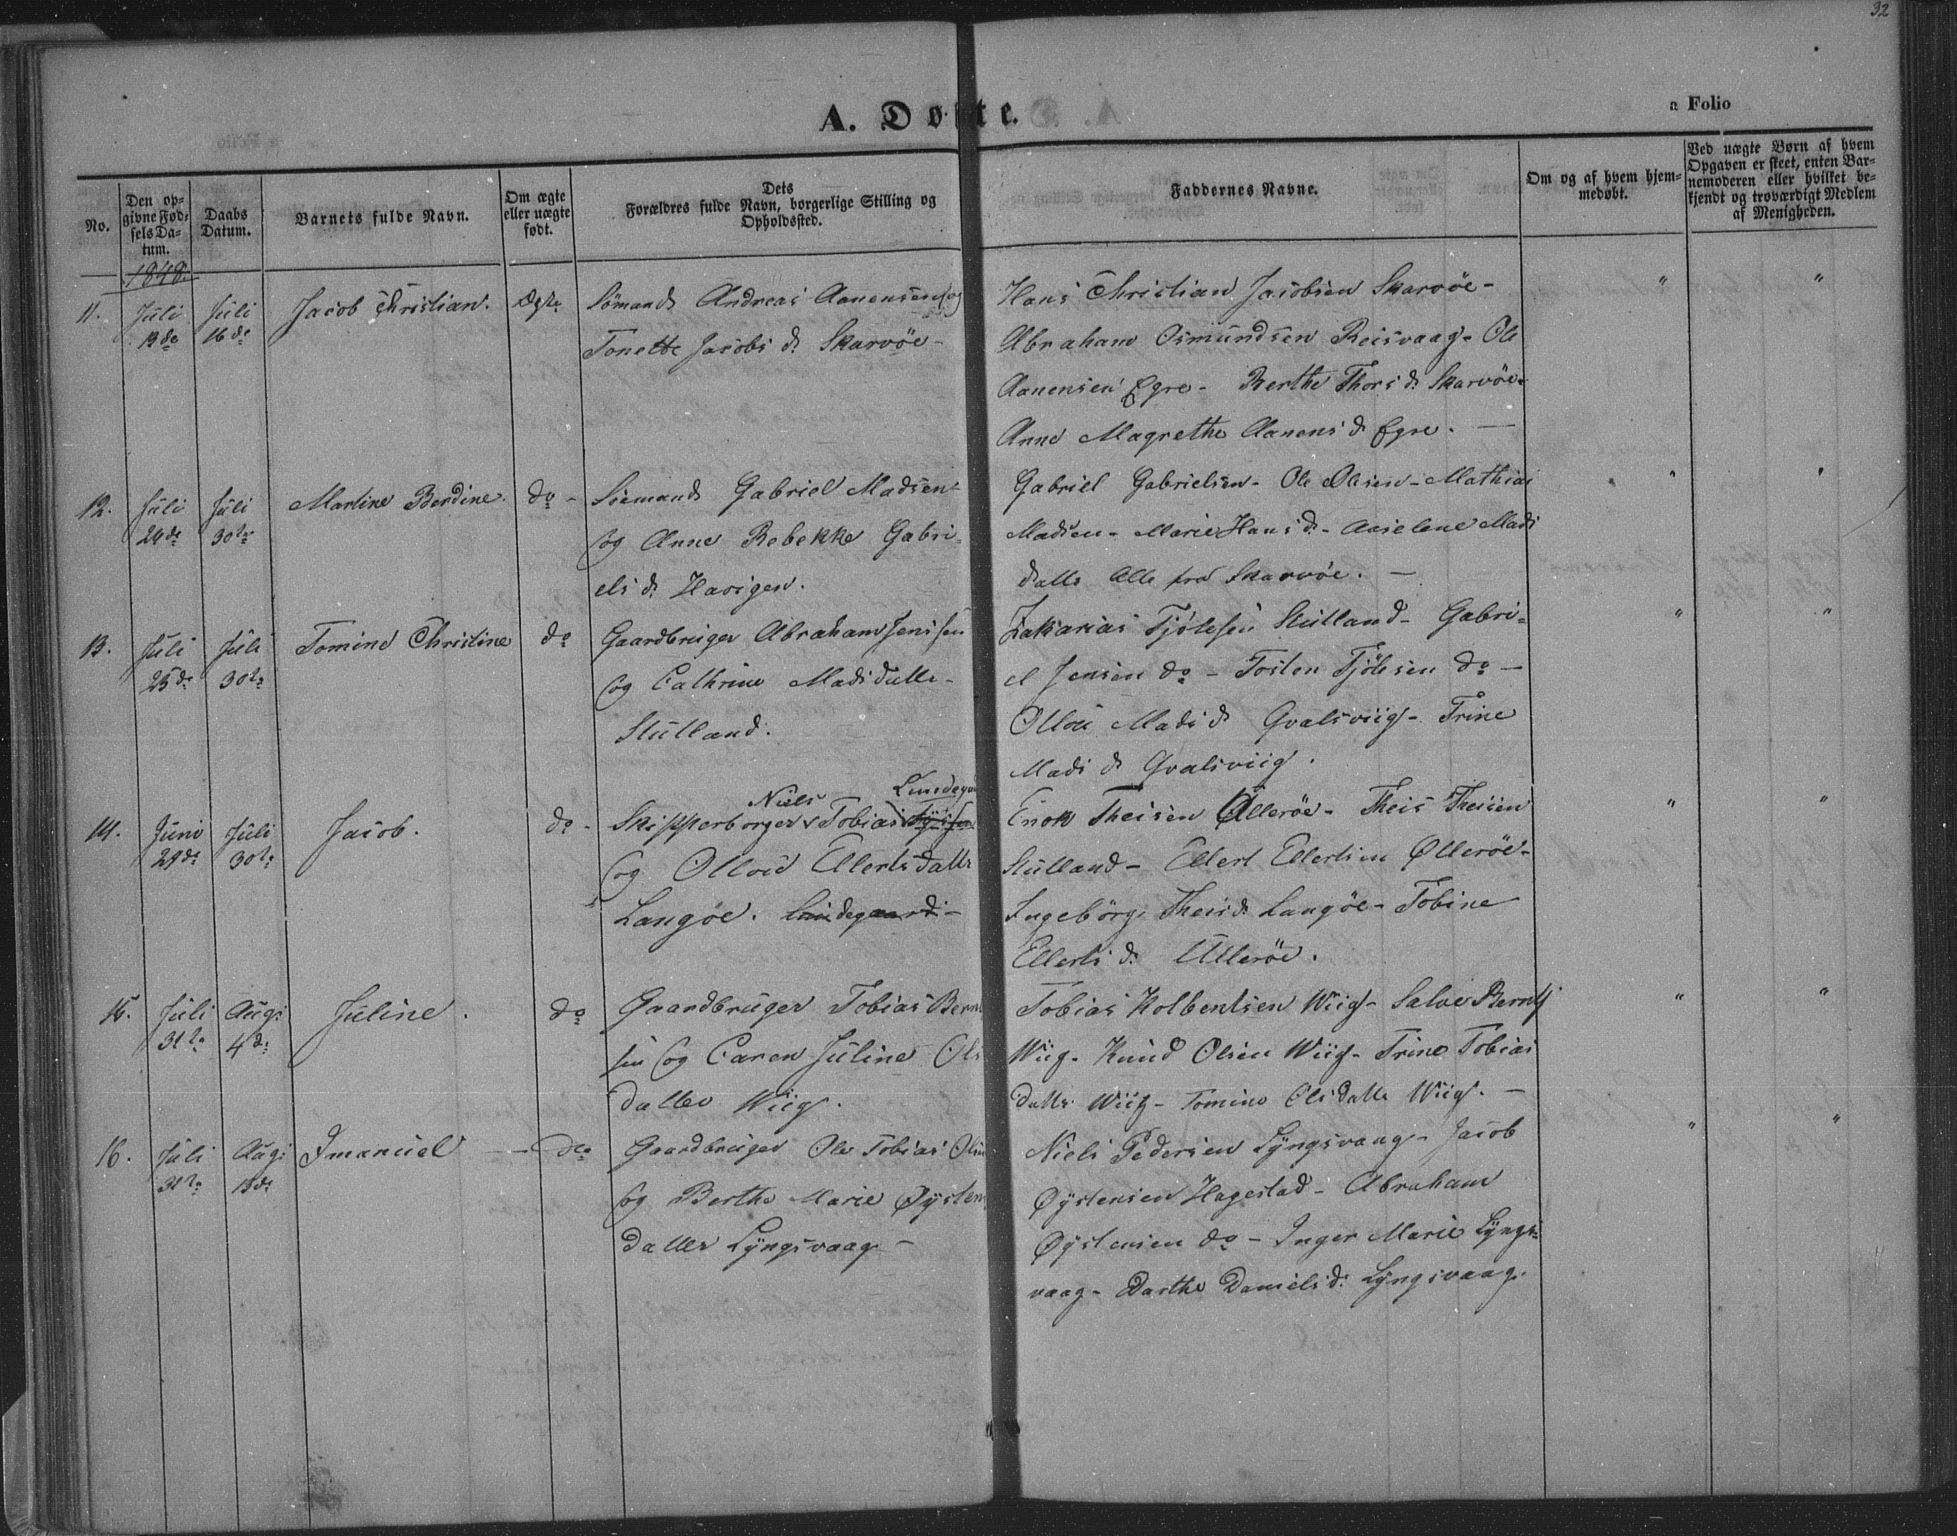 32
A. Døbte.
a Folio
No.
Den op-
givne Fød-
sels Da-
tum.
Daabs
Datum.
Barnets fulde Navn.
Om ægte
eller uægte
født.
Dets
Forældres fulde Navn, borgerlige Stilling og
Opholdssted.
Faddernes Navne.
Om og af hvem hjem-
medøbt.
Ved uægte Børn af hvem
Opgaven er skeet, enten Bar-
nemoderen eller hvilket be-
kjendt og troværdigt Medlem
af Menigheden.
1848.
11. Juli Juli Jacob Christian. Ægte Sømand Andreas Aanensen og
16de
Tonette Jacobs d. Skarvøe -
Hans Christian Jacobsen Skarvøe - " "
Abraham Osmundsen Reisvaag - Ole
Aanensen Egre - Berthe Thors d. Skarvøe -
Anne Magrethe Aanens d. Egre. -
12. Juli Juli Martine Berdine. do - Sömand Gabriel Madsen
30te og Anne Rebekke Gabri-
els d. Havigen.
Gabriel Gabrielsen - Ole Olesen - Mathias " "
Madsen - Marie Hans d. - Madsdatter
Alle fra Skarvøe. -
13. Juli Juli Tomine Christine do Gaardbruger Abraham Jensen
25de 30te og Cathrine Madsdatter -
Stulland.
Zakarias Tjölsen Stulland - Gabri- " "
el Jensen do - Tosten Tjölsen do -
Madsd. Qvalsviig - Trine
Mads d Qvalsviig.
14. Juni Juli Jacob. do - Skipperborger Niels Tobias Lundegaard
30te og Ellertsdatter
Langøe. Lundegaard -
Enok Theisen Øllerøe - Theis Theisen " "
Stulland - Ellert Ellertsen Øllerøe -
Ingebörg Theisd. Langøe - Tobine
Ellerts d. Ullerøe.
15. Juli Aug: Juline. do Gaardbruger Tobias Bernt
31te 4de sen og Caren Juline Ols
datter Wiig.
Tobias Holbentsen Wiig - Salve Bernts " "
Wiig - Knud Olsen Wiig - Trine Tobias
datter Wiig - Tomine Olsdatter Wiig. -
16. Juli Aug: Imanuel - do Gaardbruger Ole Tobias Olsen
31te og Berthe Marie Øystens
datter Lyngsvaag -
Niels Pedersen Lyngsvaag - Jacob " "
Øystensen Hagestad - Abraham
Øystensen do - Inger Marie Lyngs-
vaag - Darthe Daniels d. Lyngsvaag.